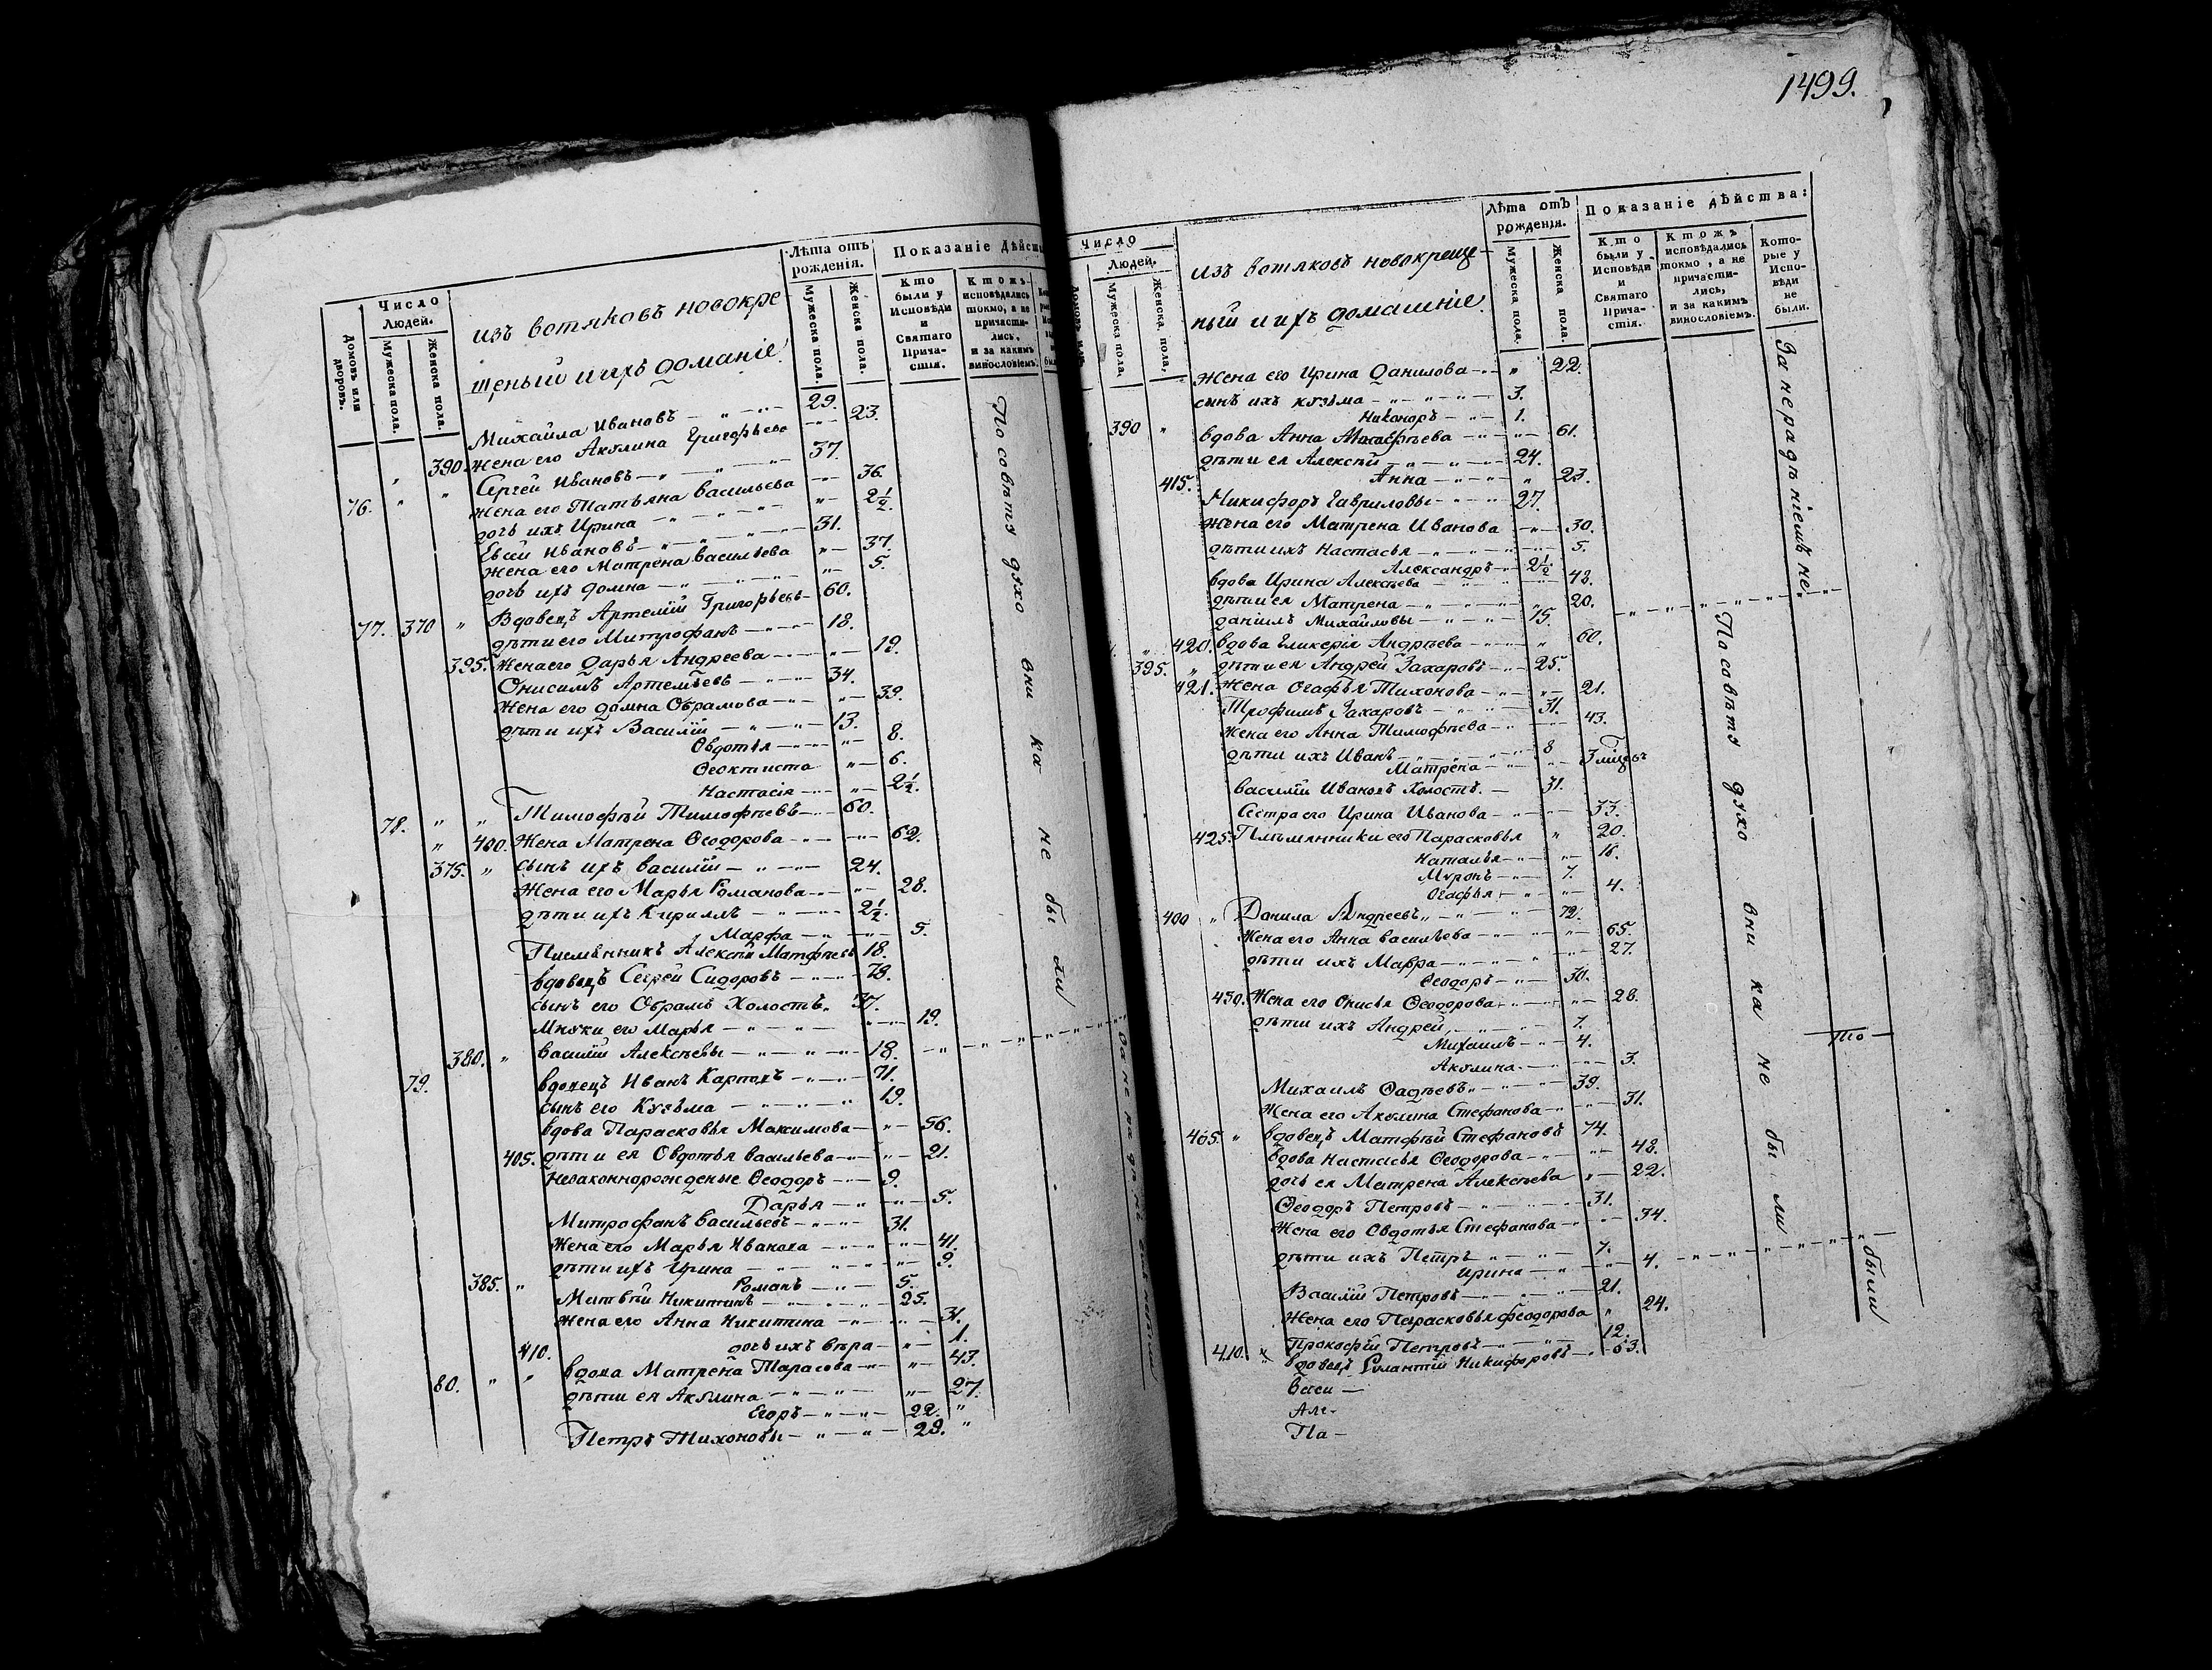 1499.
Число Людей.
Домовъ или дворовъ.
Мужеска пола.
Женска пола.
изъ вотяковъ новокре-
щеный и ихъ доманіе
Лѣта отъ рожденія.
Мужеска пола.
Женска пола.
Показаніе дѣйст
Кто были у Исповѣди и Святаго Прича- стія.
Ктожъ исповѣдались токмо, а не причасти- лись, и за какимъ винословіемъ.
Михайла Ивановъ 29.
390. жена его Акулина Григорьева 23.
76. Сергей Ивановъ 37.
жена его Татьяна Васильева 36.
дочь ихъ Ирина 2½.
Евсей Ивановъ 31.
жена его Матрена Васильева 37.
дочь ихъ Домна 5.
77. 370 Вдовецъ Артемій Григорьевъ 60.
дѣти его Митрофанъ 18.
395. жена его Дарья Андреева 19.
Онисимъ Артемьевъ 34.
жена его Домна Обрамова 39.
дѣти ихъ Василій 13.
Овдотья 8.
Ѳеоктиста 6.
Настасія 2½.
78. Тимофѣй Тимофѣевъ 60.
400. Жена Матрена Ѳеодорова 62.
375. сынъ ихъ Василій 24.
жена его Марья Романова 28.
дѣти ихъ Кирилъ 2½.
Марфа 5.
Племянникъ Алексѣй Матфѣевъ 18.
вдовецъ Сергей Сидоровъ 78.
сынъ его Обрамъ Холостъ. 37.
Мнуки его Марья 19.
380. Василій Алексѣевы 18.
79. вдовецъ Иванъ Карповъ 71.
сынъ его Кузьма 19.
вдова Парасковья Максимова 56.
405. дѣти ея Овдотья Васильева 21.
незаконнорожденые Ѳеодоръ 9.
Дарья 5.
Митрофанъ Васильевъ 31.
жена его Марья Иванова 41.
дѣти ихъ Ирина 9.
385. Романъ 5.
Матвѣй Никитинъ 25.
жена его Анна Никитина 31.
410. дочь ихъ Вѣра 1.
80. вдова Матрена Тарасова 43.
дѣти ея Акулина 27.
Егоръ 22.
Петръ Тихоновы 29.
По совѣту духовника не были
Число Людей.
Мужеска пола.
Женска пола,
изъ вотяковъ новокреще-
ный и ихъ домашніе
Лѣта отъ рожденія.
Мужеска пола.
Женска пола.
Показаніе дѣйства:
Кто были у Исповѣди и Святаго Прича- стія.
Ктожъ исповѣдались токмо, а не причасти- лись, и за какимъ винословіемъ.
Кото- рые у Испо- вѣди не были.
жена его Ирина Данилова 22.
сынъ ихъ Кузьма 3.
Никоноръ 1.
390 вдова Анна 61.
дѣти ея Алексѣй 24.
415. Анна 23.
Никифоръ Гавриловы 27.
жена его Матрена Иванова 30.
дѣти ихъ Настасья 5.
Александръ 2½.
вдова Ирина Алексѣева 48.
дѣти ея Матрена 20.
даніилъ Михайловы 15.
420. вдова Гликерія Андрѣева 60.
395. дѣти ея Андрей Захаровъ 25.
421. Жена Огафья Тихонова 21.
Трофимъ Захаровъ 31.
жена его Анна Тимофѣева 43.
дѣти ихъ Иванъ 8
Матрена 3
Василій Ивановъ Холостъ. 31.
Сестра его Ирина Иванова 33.
425. Племянники его Парасковья 20.
Наталья 18.
Миронъ 7.
Огафья 4.
400 Данила Андреевъ 72.
жена его Анна Васильева 65.
дѣти ихъ Мавра 27.
Ѳеодоръ 30.
430. Жена его Онисья Ѳеодорова 28.
дѣти ихъ Андрей 7.
Михаилъ 4.
Акулина 3.
Михаилъ Ѳадѣевъ 39.
жена его Акулина Стефанова 31.
405 вдовецъ Матфѣй Стефановъ 74.
вдова Настасья Ѳеодорова 48.
дочь ея Матрена Алексѣева 22.
Ѳеодоръ Петровъ 31.
жена его Овдотья Стефанова 34.
дѣти ихъ Петръ 7.
Ирина 4.
Василій Петровъ 21.
жена его Парасковья Феодорова 24.
410. Прокофій Петровъ 12.
вдовецъ Никифоровъ 63.
Васи —
Але-
Па —
За нерадѣніемъ не
По совѣту духовника не были
то
были